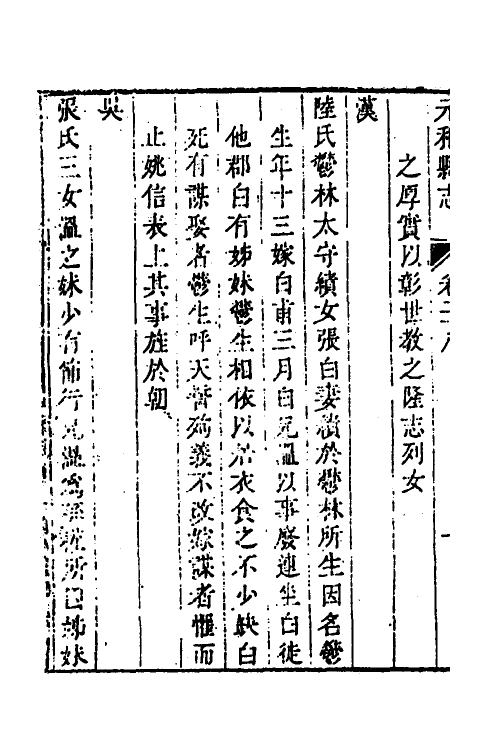 元和縣志 卷二八
之厚實以彰世教之隆志列女
漢
陸氏鬱林太守績女張白妻績於鬱林所生因名鬱
生年十三嫁白甫三月白兄溫以事廢連坐白徒
他郡白有姊妹鬱生相依以居衣食之不少缺白
死有謀娶者鬱生呼天誓殉義不改嫁謀者慚而
止姚信表上其事旌於朝
吳
張氏三女溫之妹少有節行兄溫為孫權所 姊妹